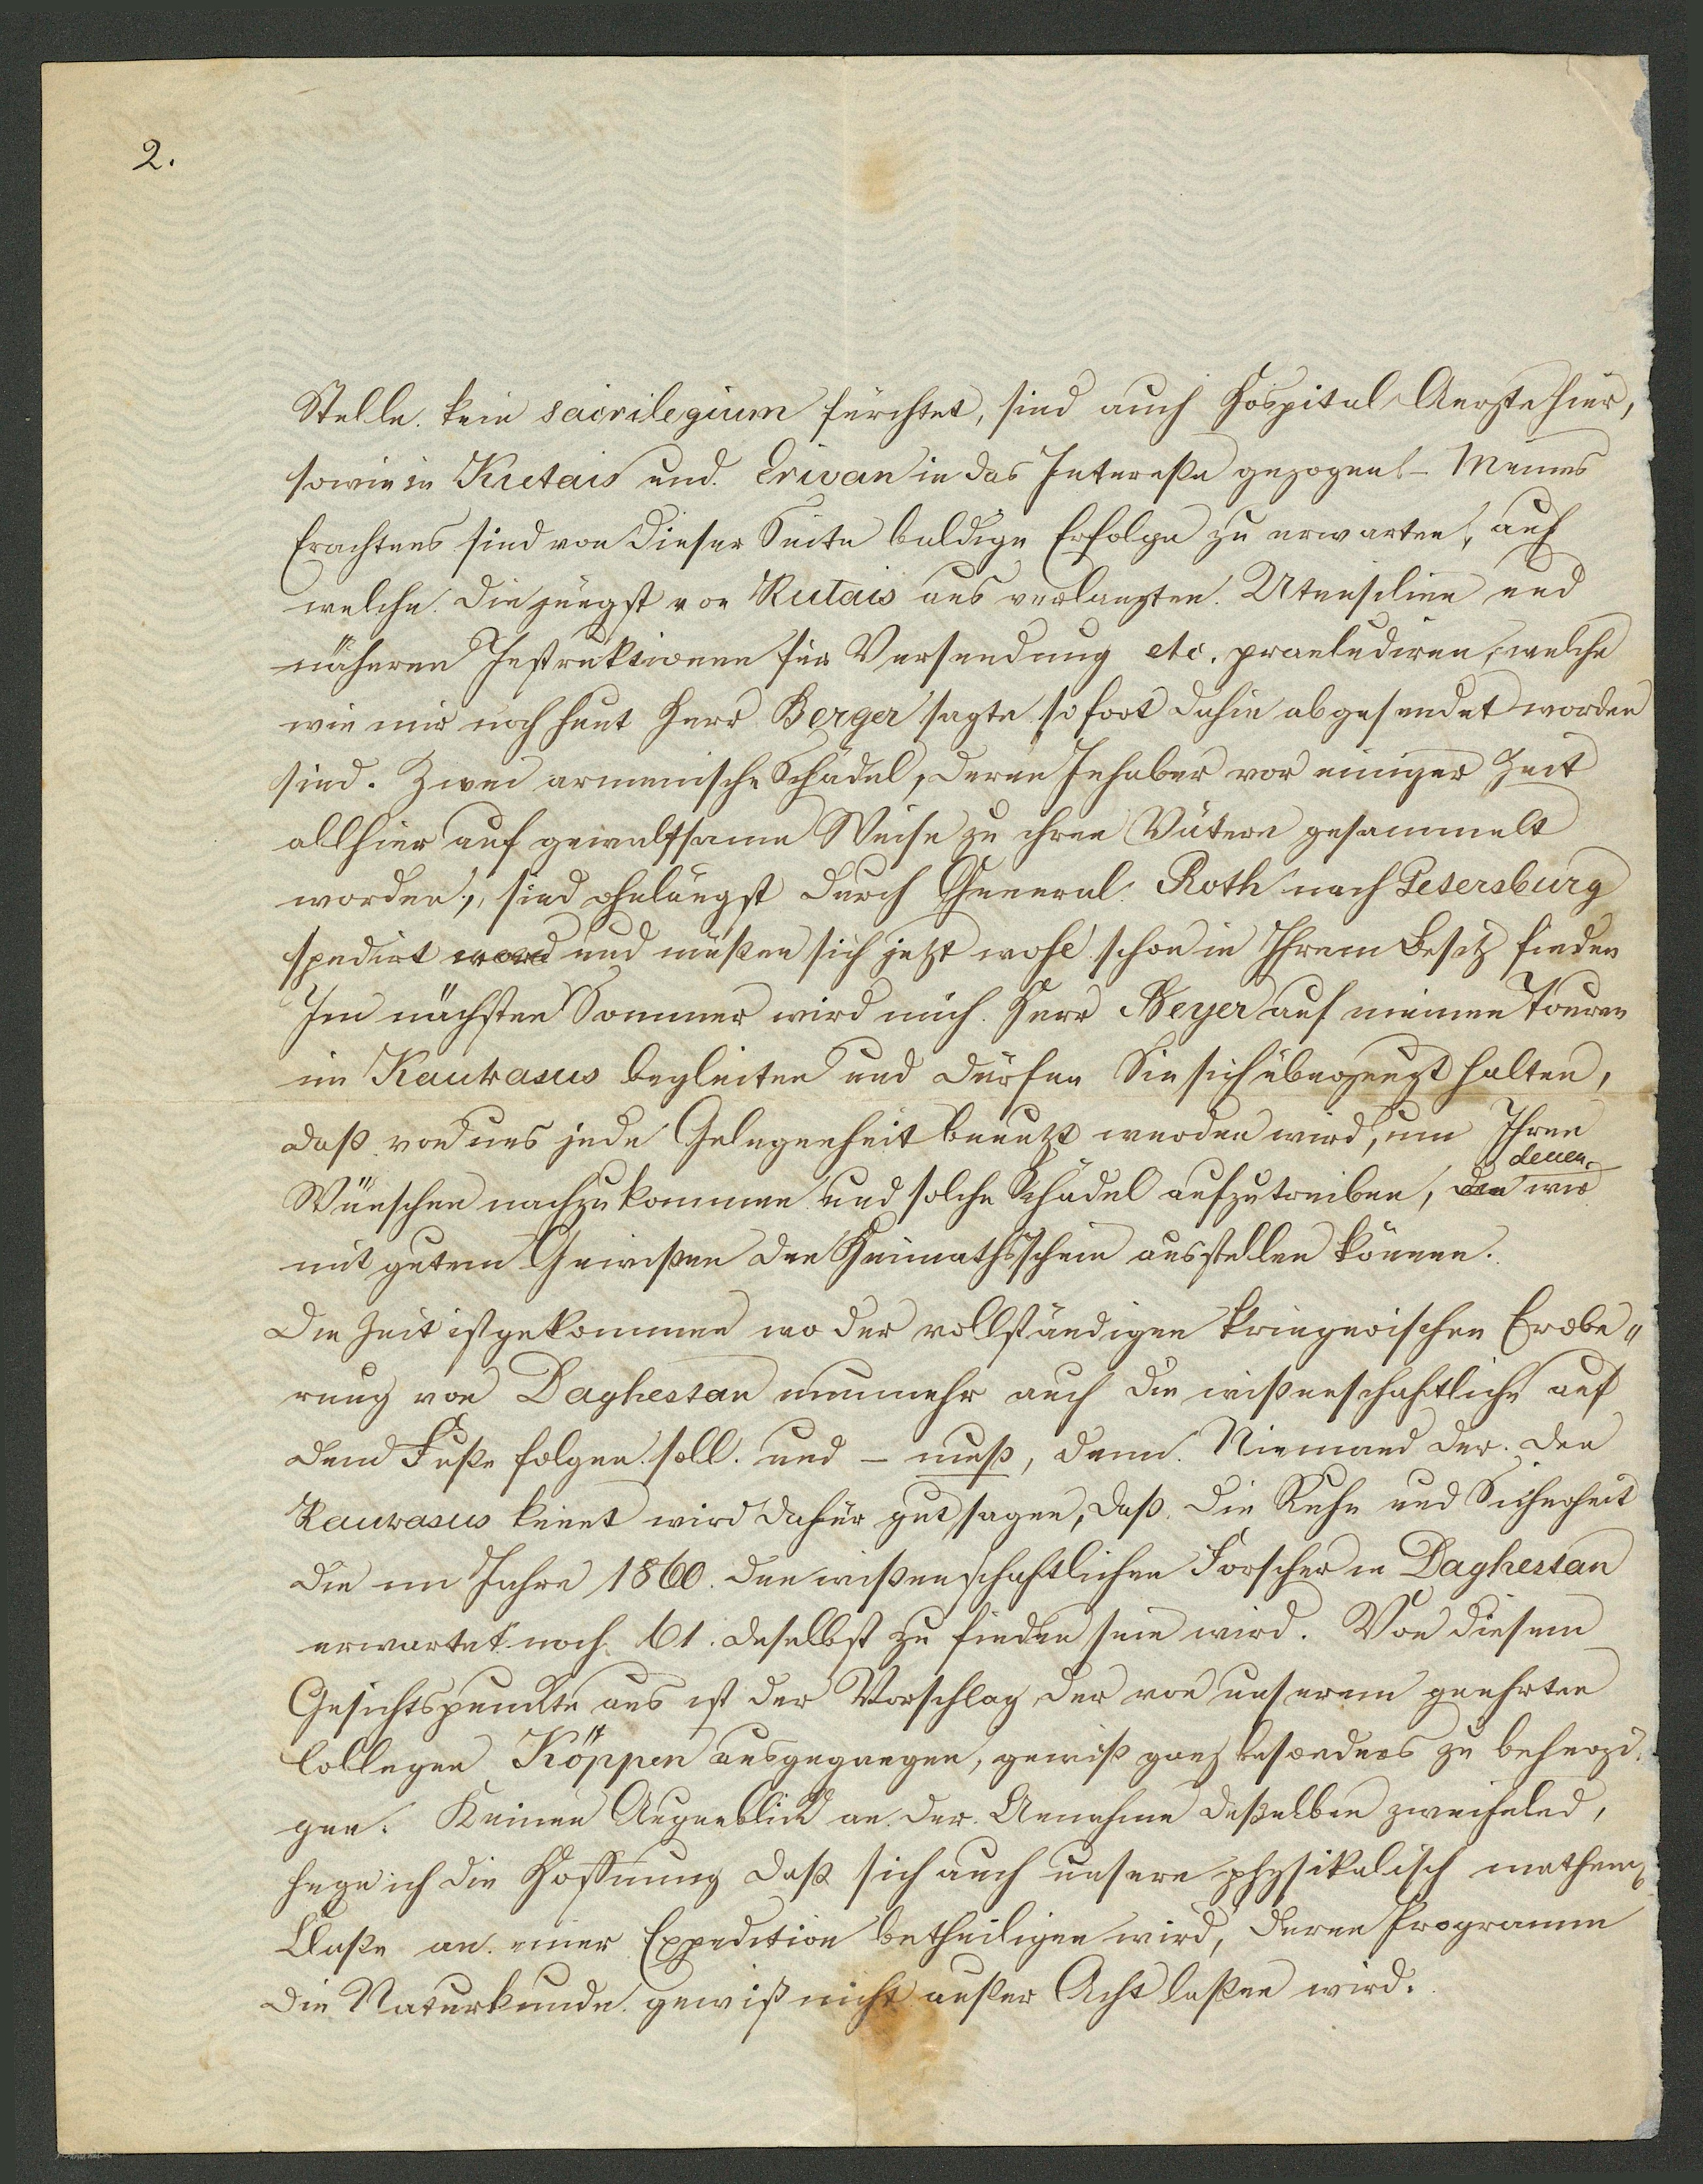 2.
Stelle kein sacrilegium fürchtet, sind auch Hospital Aerzte hier,
sowie in Kutais und Erivan in das Interesse gezogen. – Meines
Erachtens sind von dieser Seite baldige Erfolge zu erwarten, auf
welche die jüngst von Kutais aus verlangten Utensilien und
näheren Instruktionen für Versendung etc. praeludiren, welche
wie mir noch heut Herr Berger sagte sofort dahin abgesendet worden
sind. Zwei armenische Schädel, deren Inhaber vor einiger Zeit
allhier auf gewaltsame Weise zu ihren Vätern gesammelt
worden, sind ohnlängst durch General Roth nach Petersburg
spedirt word und müßen sich jetzt wohl schon in Ihrem Besitz finden
Im nächsten Sommer wird mich Herr Beyer auf meinen Touren
im Kaukasus begleiten und dürfen Sie sich überzeugt halten,
daß von uns jede Gelegenheit benutzt werden wird, um Ihren
Wünschen nachzukommen und solche Schädel aufzutreiben, denen wir
mit gutem Gewißen den Heimathsschein ausstellen können.
Die Zeit ist gekommen wo der vollständigen kriegerischen Erobe„
rung von Daghestan nunmehr auch die wißenschaftliche auf
dem Fuße folgen soll und – muß, denn Niemand der den
Kaukasus kennt wird dafür gut sagen, daß die Ruhe und Sicherheit
die im Jahre 1860 den wißenschaftlichen Forscher in Daghestan
erwartet noch 61 daselbst zu finden sein wird. Von diesem
Gesichtspunkte aus ist der Vorschlag der von unserem geehrten
Collegen Köppen ausgegangen, gewiß ganz besonders zu beherzi„
gen. Keinen Augenblick an der Annahme deßelben zweifelnd,
hege ich die Hoffnung daß sich auch unsere physikalisch mathem.
Claße an einer Expedition betheiligen wird, deren Programm
die Naturkunde gewiß nicht außer Acht laßen wird.